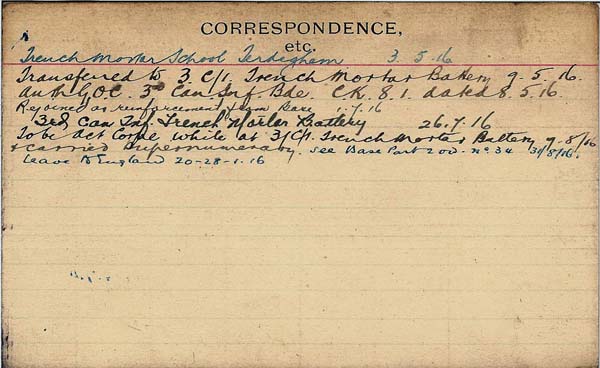 CORRESPONDENCE,
etc.
Trench Mortar School Terdeghem 3.5.16
Transferred to 3 C/1. Trench Mortar Battery 9.5.16.
Auth G.O.C. 3rd Can Inf. Bde C.K. 8.1. dated 8.5.16.
Rejoined as reinforcement from Base 1.7.16
3rd Can Inf. Trench Mortar Battery 26.7.16
To be Act Corpl while at 3/C/1. Trench Mortar Battery 9-8/16
& carried supernumerary. See Base Part 2 O.D. No 34 31/8/16.
Leave to England 20-28-1.16